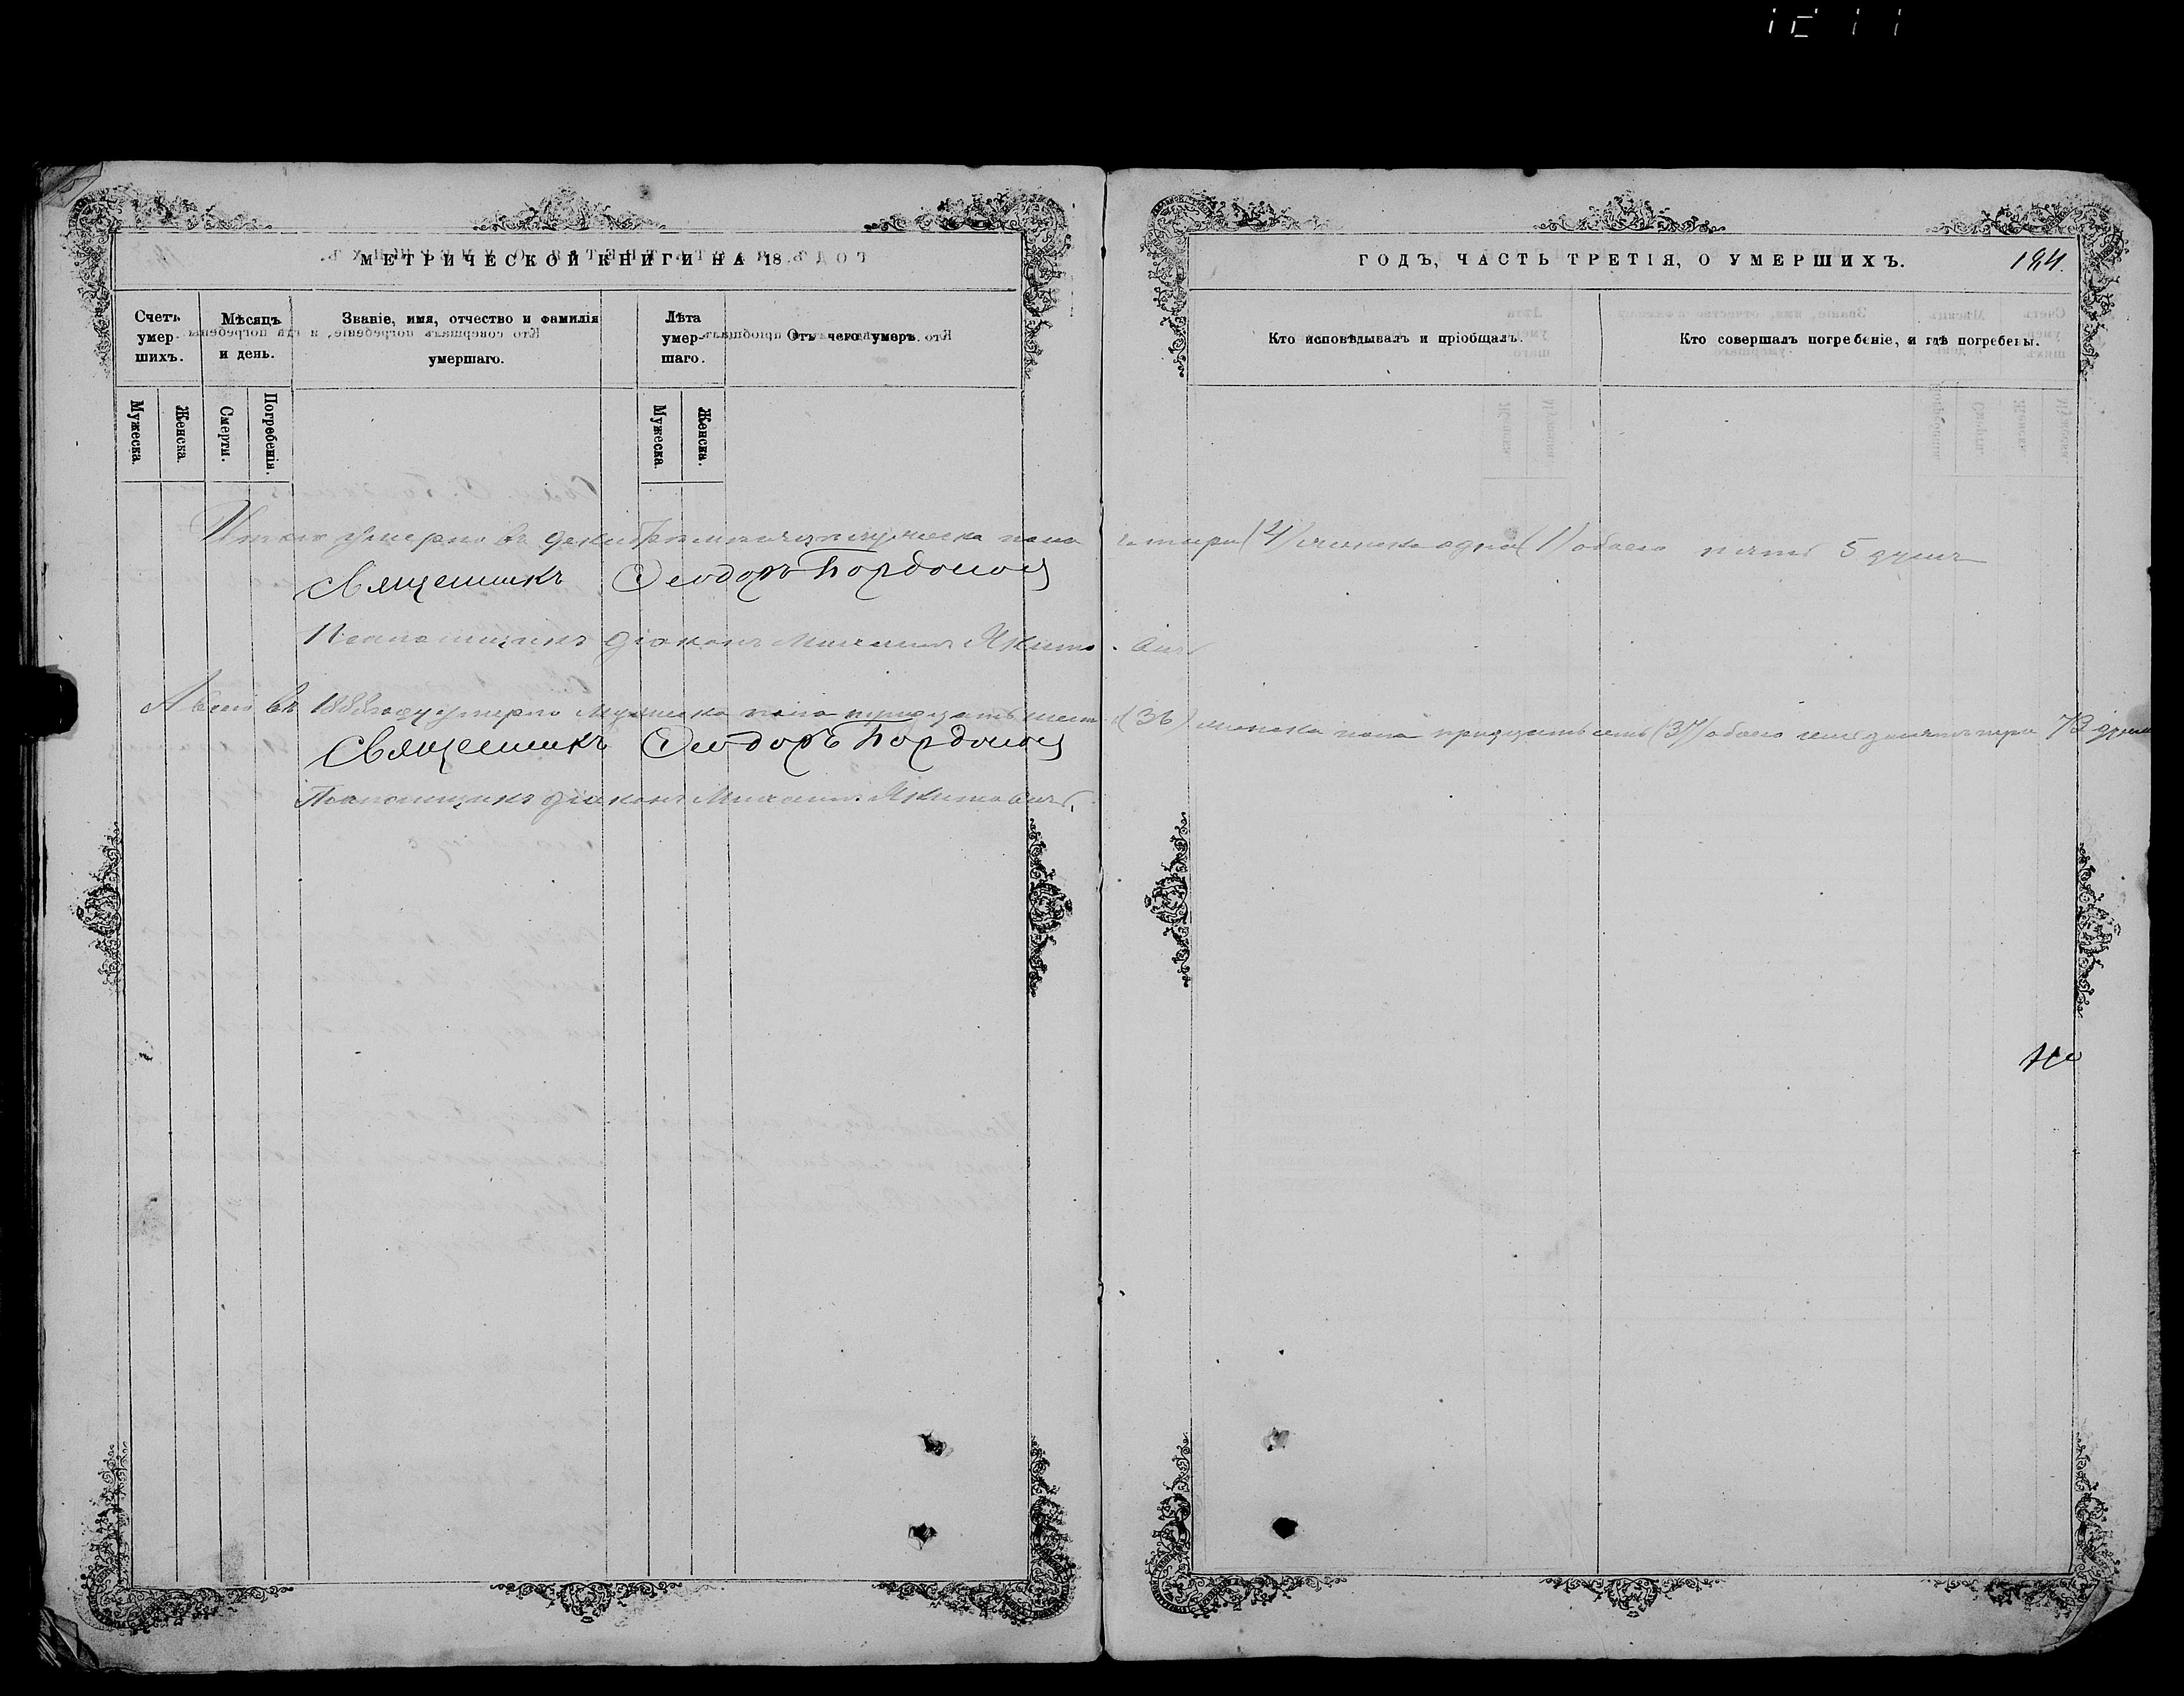 МЕТРИЧЕСКОЙ КНИГИ НА 18
ГОДЪ, ЧАСТЬ ТРЕТІЯ, О УМЕРШИХЪ.
194.
Счетъ умер шихъ.
Мѣсяцъ и день.
Званіе, имя, отчество и фамилія умершаго.
Лѣта умер- шаго.
Отъ чего умеръ.
Кто исповѣдывалъ и пріобщалъ.
Кто совершалъ погребеніе, и гдѣ погребены.
Мужеска.
Женска.
Смерти.
Погребенія.
Мужеска.
Женска.
Итого умерло въ Декабрѣ мѣсяцѣ мужеска пола четыри (4) женска одна (1) обоего пять 5 душъ
Священникъ Ѳеодоръ Бордонос
Псаломщикъ діаконъ Михаилъ Якимовичъ
А всего въ 1888 году умерло Мужеска пола тридцать шесть (36) женска пола тридцать семь (37) обоего семдесятъ три 73 души
Священникъ Ѳеодоръ Бордонос
Псаломщикъ діаконъ Михаилъ Якимовичъ.